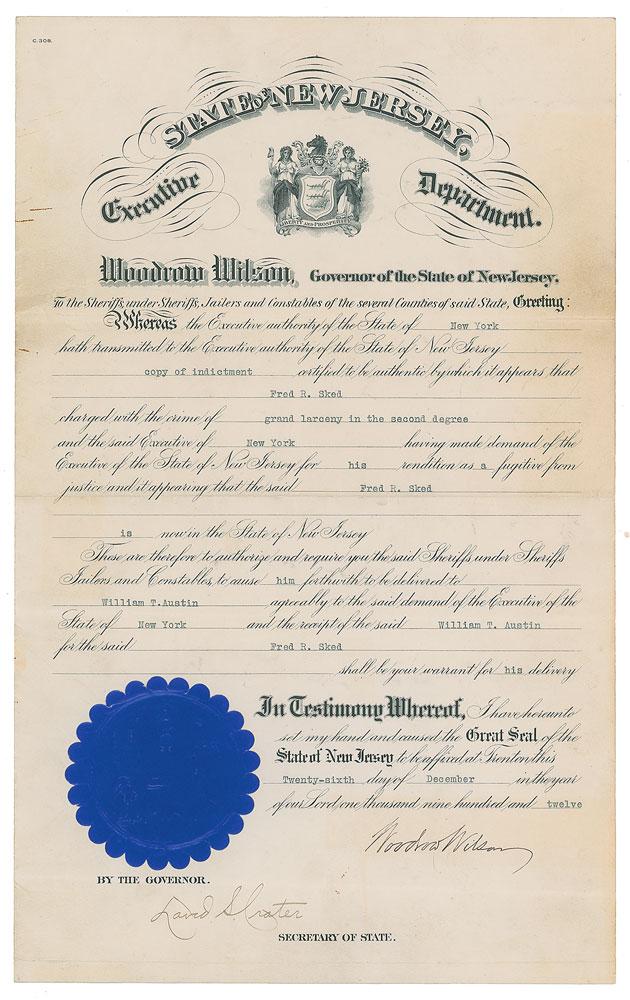 C. 308.
STATE OF NEW JERSEY,
Executive Department.
LIBERTY AND PROSPERITY
Woodrow Wilson, Governor of the State of New Jersey.
To the Sheriffs, under Sheriffs, Jailers and Constables of the several Counties of said State, Greeting:
Whereas the Executive authority of the State of New York
hath transmitted to the Executive authority of the State of New Jersey
copy of indictment certified to be authentic by which it appears that
Fred R. Sked
charged with the crime of grand larceny in the second degree
and the said Executive of New York having made demand of the
Executive of the State of New Jersey for his rendition as a fugitive from
justice and it appearing that the said Fred R. Sked
is now in the State of New Jersey
These are therefore to authorize and require you the said Sheriffs, under Sheriffs
Jailers and Constables, to cause him forthwith to be delivered to
William T. Austin agreeably to the said demand of the Executive of the
State of New York and the receipt of the said William T. Austin
for the said Fred R. Sked
shall be your warrant for his delivery
In Testimony Whereof, I have hereunto
set my hand and caused the Great Seal of the
State of New Jersey to be affixed at Trenton this
Twenty-sixth day of December in the year
of our Lord one thousand nine hundred and twelve
Woodrow Wilson
BY THE GOVERNOR.
David S. Crater
SECRETARY OF STATE.